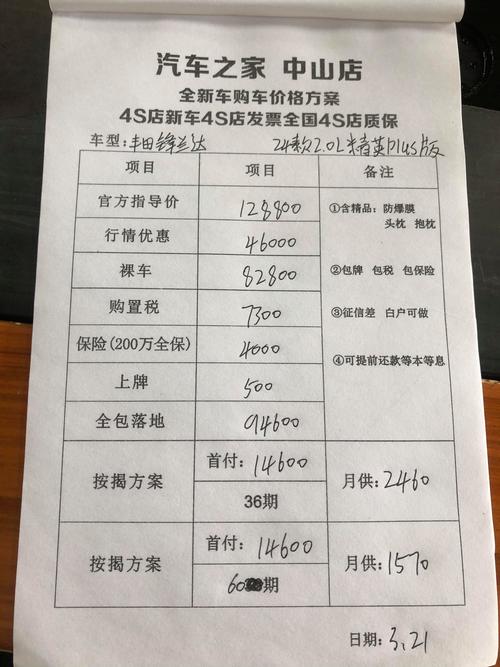 汽车之家 中山店
全新车购车价格方案
4S店新车4S店发票全国4S店质保
车型: 丰田锋兰达 24款2.0L精英Plus版
项目 项目 备注
官方指导价 128800 ①含精品: 防爆膜
头枕 抱枕
行情优惠 46000
裸车 82800 ②包牌 包税 包保险
购置税 7300 ③征信差 白户可做
保险(200万全保) 4000 ④可提前还款等本等息
上牌 500
全包落地 94600
按揭方案 首付: 14600 月供: 2460
36期
按揭方案 首付: 14600 月供: 1570
60期
日期: 3.21